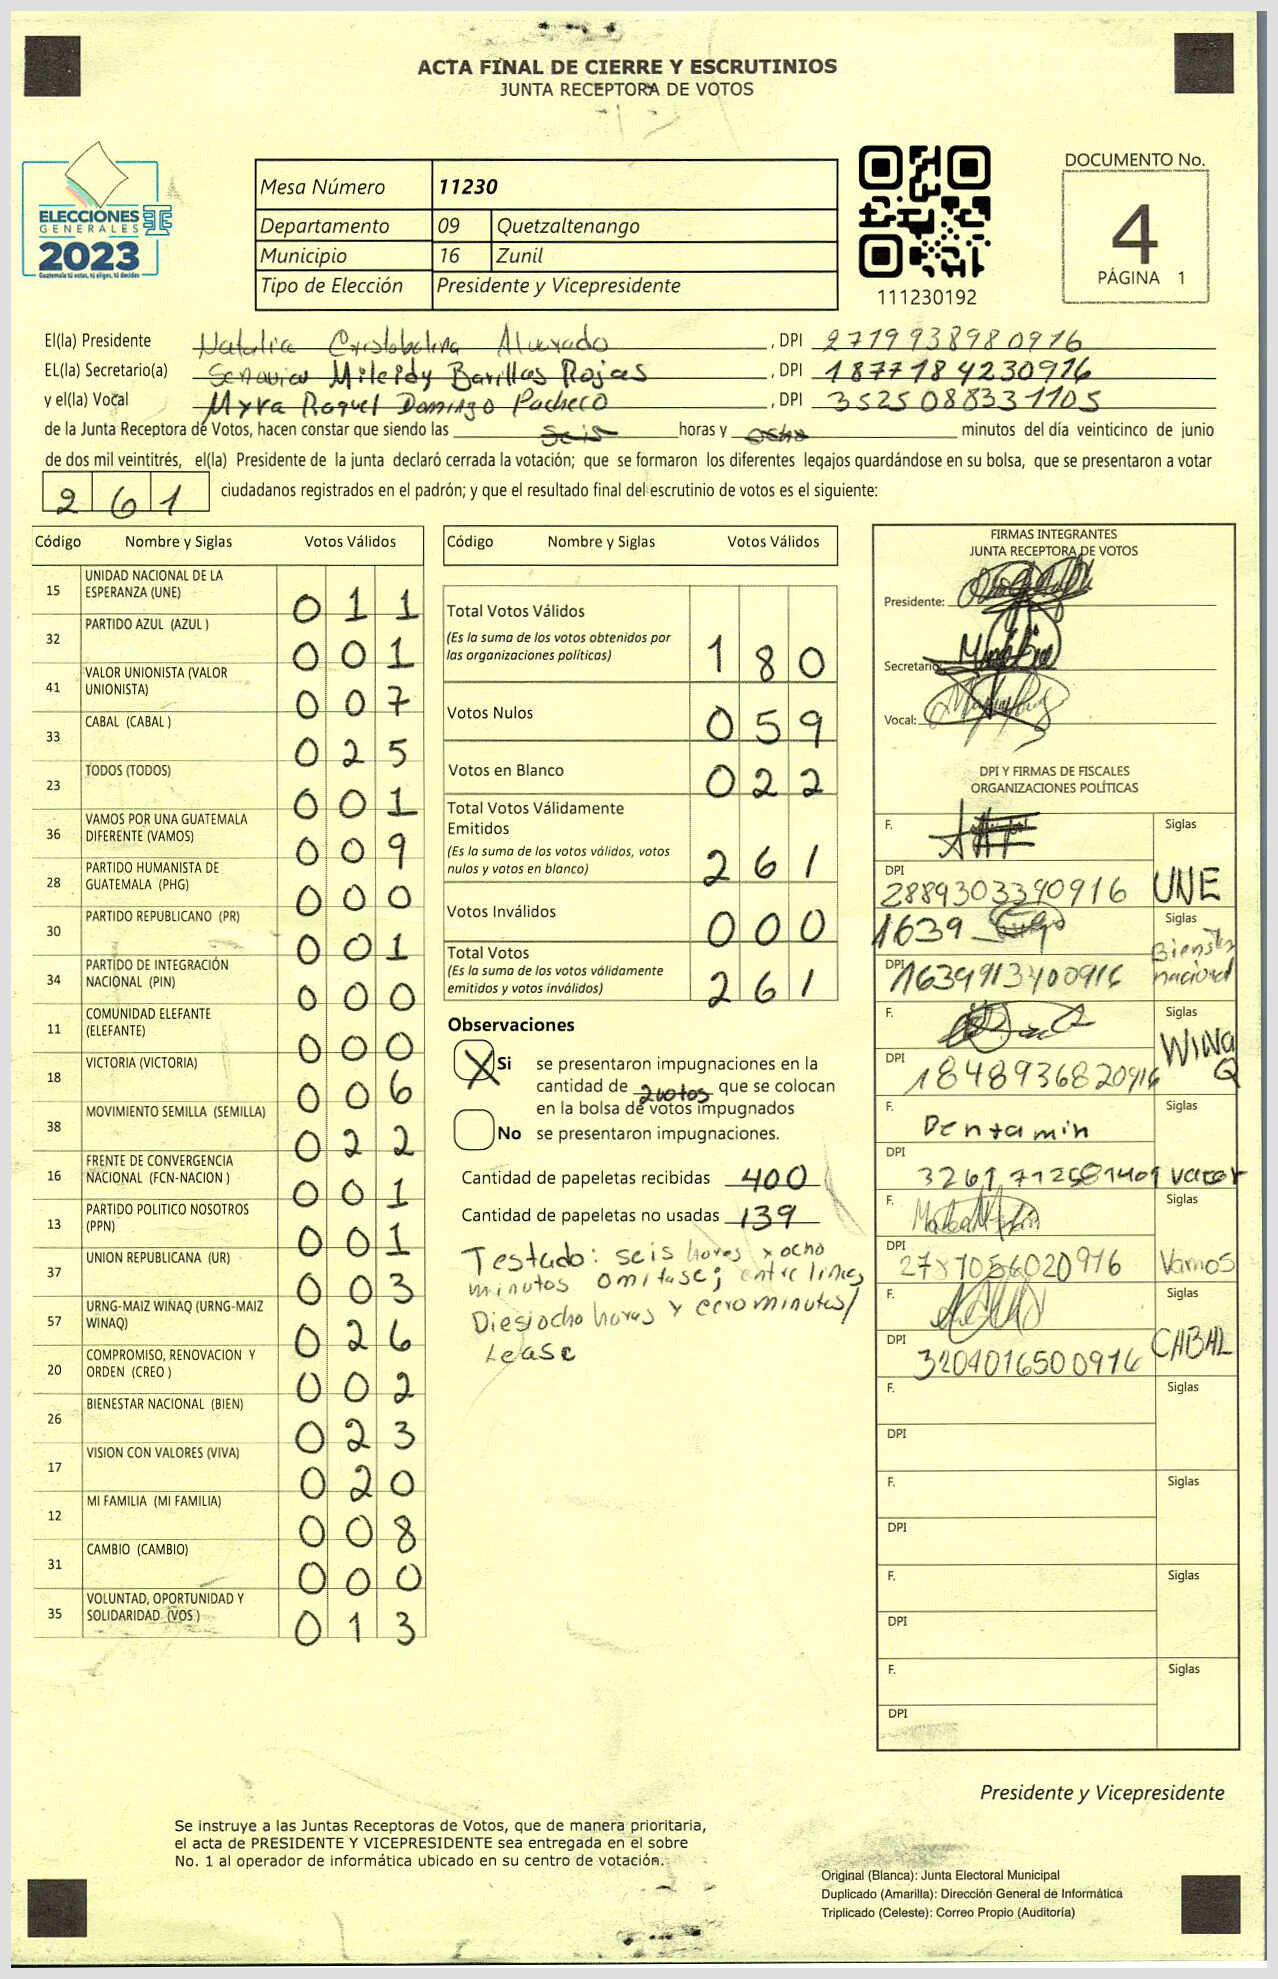 ACTA FINAL DE CIERRE Y ESCRUTINIOS
JUNTA RECEPTORA DE VOTOS
ELECCIONES
GENERALES
2023
Guatemala tú votas, tú eliges, tú decides
Mesa Número 11230
Departamento 09 Quetzaltenango
Municipio 16 Zunil
Tipo de Elección Presidente y Vicepresidente
111230192
DOCUMENTO No.
4
PÁGINA 1
El(la) Presidente Natalia Cristobalina Alvarado, DPI 2719938980916
EL(la) Secretario(a) Mileidy Barillas Rojas, DPI 1877184230916
y el(la) Vocal Myra Raquel Domingo Pacheco, DPI 3525088331105
de la Junta Receptora de Votos, hacen constar que siendo las seis horas y ocho minutos del día veinticinco de junio
de dos mil veintitrés, el(la) Presidente de la junta declaró cerrada la votación; que se formaron los diferentes legajos guardándose en su bolsa, que se presentaron a votar
261 ciudadanos registrados en el padrón; y que el resultado final del escrutinio de votos es el siguiente:
Código Nombre y Siglas Votos Válidos
15 UNIDAD NACIONAL DE LA ESPERANZA (UNE) 011
32 PARTIDO AZUL (AZUL ) 001
41 VALOR UNIONISTA (VALOR UNIONISTA) 007
33 CABAL (CABAL ) 025
23 TODOS (TODOS) 001
36 VAMOS POR UNA GUATEMALA DIFERENTE (VAMOS) 009
28 PARTIDO HUMANISTA DE GUATEMALA (PHG) 000
30 PARTIDO REPUBLICANO (PR) 001
34 PARTIDO DE INTEGRACIÓN NACIONAL (PIN) 000
11 COMUNIDAD ELEFANTE (ELEFANTE) 000
18 VICTORIA (VICTORIA) 006
38 MOVIMIENTO SEMILLA (SEMILLA) 022
16 FRENTE DE CONVERGENCIA NACIONAL (FCN-NACION ) 001
13 PARTIDO POLITICO NOSOTROS (PPN) 001
37 UNION REPUBLICANA (UR) 003
57 URNG-MAIZ WINAQ (URNG-MAIZ WINAQ) 026
20 COMPROMISO, RENOVACION Y ORDEN (CREO ) 002
26 BIENESTAR NACIONAL (BIEN) 023
17 VISION CON VALORES (VIVA) 020
12 MI FAMILIA (MI FAMILIA) 008
31 CAMBIO (CAMBIO) 000
35 VOLUNTAD, OPORTUNIDAD Y SOLIDARIDAD (VOS ) 013
Código Nombre y Siglas Votos Válidos
Total Votos Válidos 180
(Es la suma de los votos obtenidos por
las organizaciones políticas)
Votos Nulos 059
Votos en Blanco 022
Total Votos Válidamente
Emitidos 261
(Es la suma de los votos válidos, votos
nulos y votos en blanco)
Votos Inválidos 000
Total Votos 261
(Es la suma de los votos válidamente
emitidos y votos inválidos)
Observaciones
X Si se presentaron impugnaciones en la
cantidad de 2 votos que se colocan
en la bolsa de votos impugnados
No se presentaron impugnaciones.
Cantidad de papeletas recibidas 400
Cantidad de papeletas no usadas 139
Testado: seis horas y ocho
minutos omitase; entre lineas
Diesiocho horas y cero minutos/
Lease
FIRMAS INTEGRANTES
JUNTA RECEPTORA DE VOTOS
Presidente:
Secretario:
Vocal:
DPI Y FIRMAS DE FISCALES
ORGANIZACIONES POLÍTICAS
F. Siglas
DPI 2889303390916 UNE
1639 Siglas
DPI 1634913400916 Bienestar nacional
F. Siglas
DPI 1848936820916 WINAQ
F. Benjamin Siglas
DPI 3261712581401
F. Siglas
DPI Vamos
F. Siglas
DPI 3204016500916 CABAL
F. Siglas
DPI
F. Siglas
DPI
F. Siglas
DPI
F. Siglas
DPI
Presidente y Vicepresidente
Se instruye a las Juntas Receptoras de Votos, que de manera prioritaria,
el acta de PRESIDENTE Y VICEPRESIDENTE sea entregada en el sobre
No. 1 al operador de informática ubicado en su centro de votación.
Original (Blanca): Junta Electoral Municipal
Duplicado (Amarilla): Dirección General de Informática
Triplicado (Celeste): Correo Propio (Auditoría)